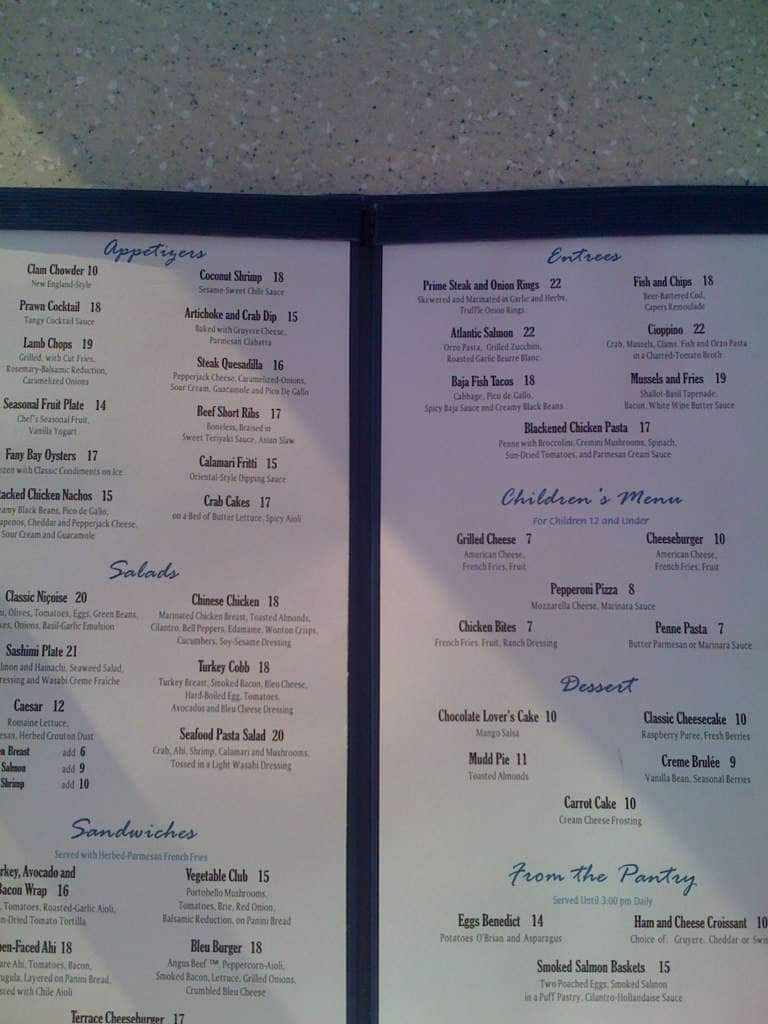 Appetizers
Clam Chowder 10
New England-Style
Prawn Cocktail 18
Tangy Cocktail Sauce
Lamb Chops 19
Grilled, with Cut Fries,
Rosemary-Balsamic Reduction,
Caramelized Onions
Seasonal Fruit Plate 14
Chef's Seasonal Fruit,
Vanilla Yogurt
Fany Bay Oysters 17
with Classic Condiments on Ice
Chicken Nachos 15
Black Beans, Pico de Gallo,
Cheddar and Pepperjack Cheese,
Sour Cream and Guacamole
Coconut Shrimp 18
Sesame-Sweet Chile Sauce
Artichoke and Crab Dip 15
Baked with Gruyere Cheese,
Parmesan Ciabatta
Steak Quesadilla 16
Pepperjack Cheese, Caramelized-Onions,
Sour Cream, Guacamole and Pico De Gallo
Beef Short Ribs 17
Boneless, Braised in
Sweet Teriyaki Sauce, Asian Slaw
Calamari Fritti 15
Oriental-Style Dipping Sauce
Crab Cakes 17
on a Bed of Butter Lettuce, Spicy Aioli
Salads
Classic Niçoise 20
Olives, Tomatoes, Eggs, Green Beans,
Onions, Basil-Garlic Emulsion
Sashimi Plate 21
and Hamachi, Seaweed Salad,
and Wasabi Creme Fraiche
Caesar 12
Romaine Lettuce,
Herbed Crouton Dust
Breast add 6
Salmon add 9
Shrimp add 10
Chinese Chicken 18
Marinated Chicken Breast, Toasted Almonds,
Cilantro, Bell Peppers, Edamame, Wonton Crisps,
Cucumbers, Soy-Sesame Dressing
Turkey Cobb 18
Turkey Breast, Smoked Bacon, Bleu Cheese,
Hard-Boiled Egg, Tomatoes,
Avocados and Bleu Cheese Dressing
Seafood Pasta Salad 20
Crab, Ahi, Shrimp, Calamari and Mushrooms,
Tossed in a Light Wasabi Dressing
Sandwiches
Served with Herbed-Parmesan French Fries
Avocado and
Bacon Wrap 16
Tomatoes, Roasted-Garlic Aioli,
Tomato Tortilla
Ahi 18
Ahi, Tomatoes, Bacon,
Layered on Panini Bread,
with Chile Aioli
Vegetable Club 15
Portobello Mushrooms,
Tomatoes, Brie, Red Onion,
Balsamic Reduction, on Panini Bread
Bleu Burger 18
Angus Beef ™, Peppercorn-Aioli,
Smoked Bacon, Lettuce, Grilled Onions,
Crumbled Bleu Cheese
Terrace Cheeseburger 17
Entrees
Prime Steak and Onion Rings 22
Skewered and Marinated in Garlic and Herbs,
Truffle Onion Rings
Fish and Chips 18
Beer-Battered Cod,
Capers Remoulade
Atlantic Salmon 22
Orzo Pasta, Grilled Zucchini,
Roasted Garlic Beurre Blanc
Cioppino 22
Crab, Mussels, Clams, Fish and Orzo Pasta
in a Charred-Tomato Broth
Baja Fish Tacos 18
Cabbage, Pico de Gallo,
Spicy Baja Sauce and Creamy Black Beans
Mussels and Fries 19
Shallot-Basil Tapenade,
Bacon, White Wine Butter Sauce
Blackened Chicken Pasta 17
Penne with Broccolini, Cremini Mushrooms, Spinach,
Sun-Dried Tomatoes, and Parmesan Cream Sauce
Children's Menu
For Children 12 and Under
Grilled Cheese 7
American Cheese,
French Fries, Fruit
Cheeseburger 10
American Cheese,
French Fries, Fruit
Pepperoni Pizza 8
Mozzarella Cheese, Marinara Sauce
Chicken Bites 7
French Fries, Fruit, Ranch Dressing
Penne Pasta 7
Butter Parmesan or Marinara Sauce
Dessert
Chocolate Lover's Cake 10
Mango Salsa
Classic Cheesecake 10
Raspberry Puree, Fresh Berries
Mudd Pie 11
Toasted Almonds
Creme Brulée 9
Vanilla Bean, Seasonal Berries
Carrot Cake 10
Cream Cheese Frosting
From the Pantry
Served Until 3:00 pm Daily
Eggs Benedict 14
Potatoes O'Brian and Asparagus
Ham and Cheese Croissant 10
Choice of: Gruyere, Cheddar or
Smoked Salmon Baskets 15
Two Poached Eggs, Smoked Salmon
in a Puff Pastry, Cilantro-Hollandaise Sauce